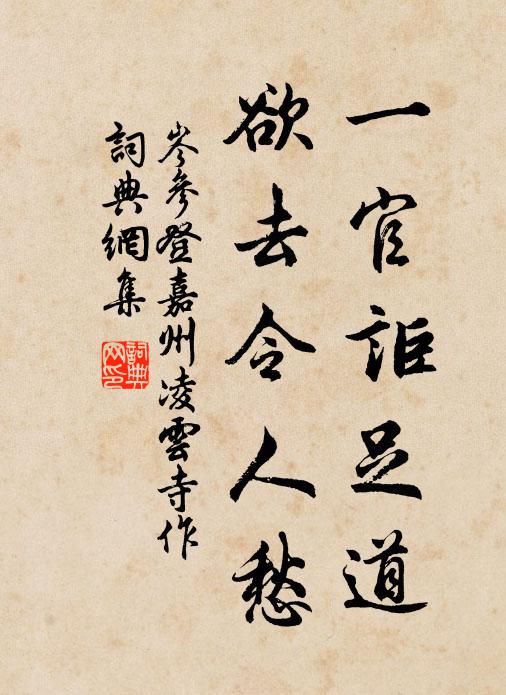 一官詎足道
欲去令人愁
岑參登嘉州凌雲寺作
詞典網集
詞典網印